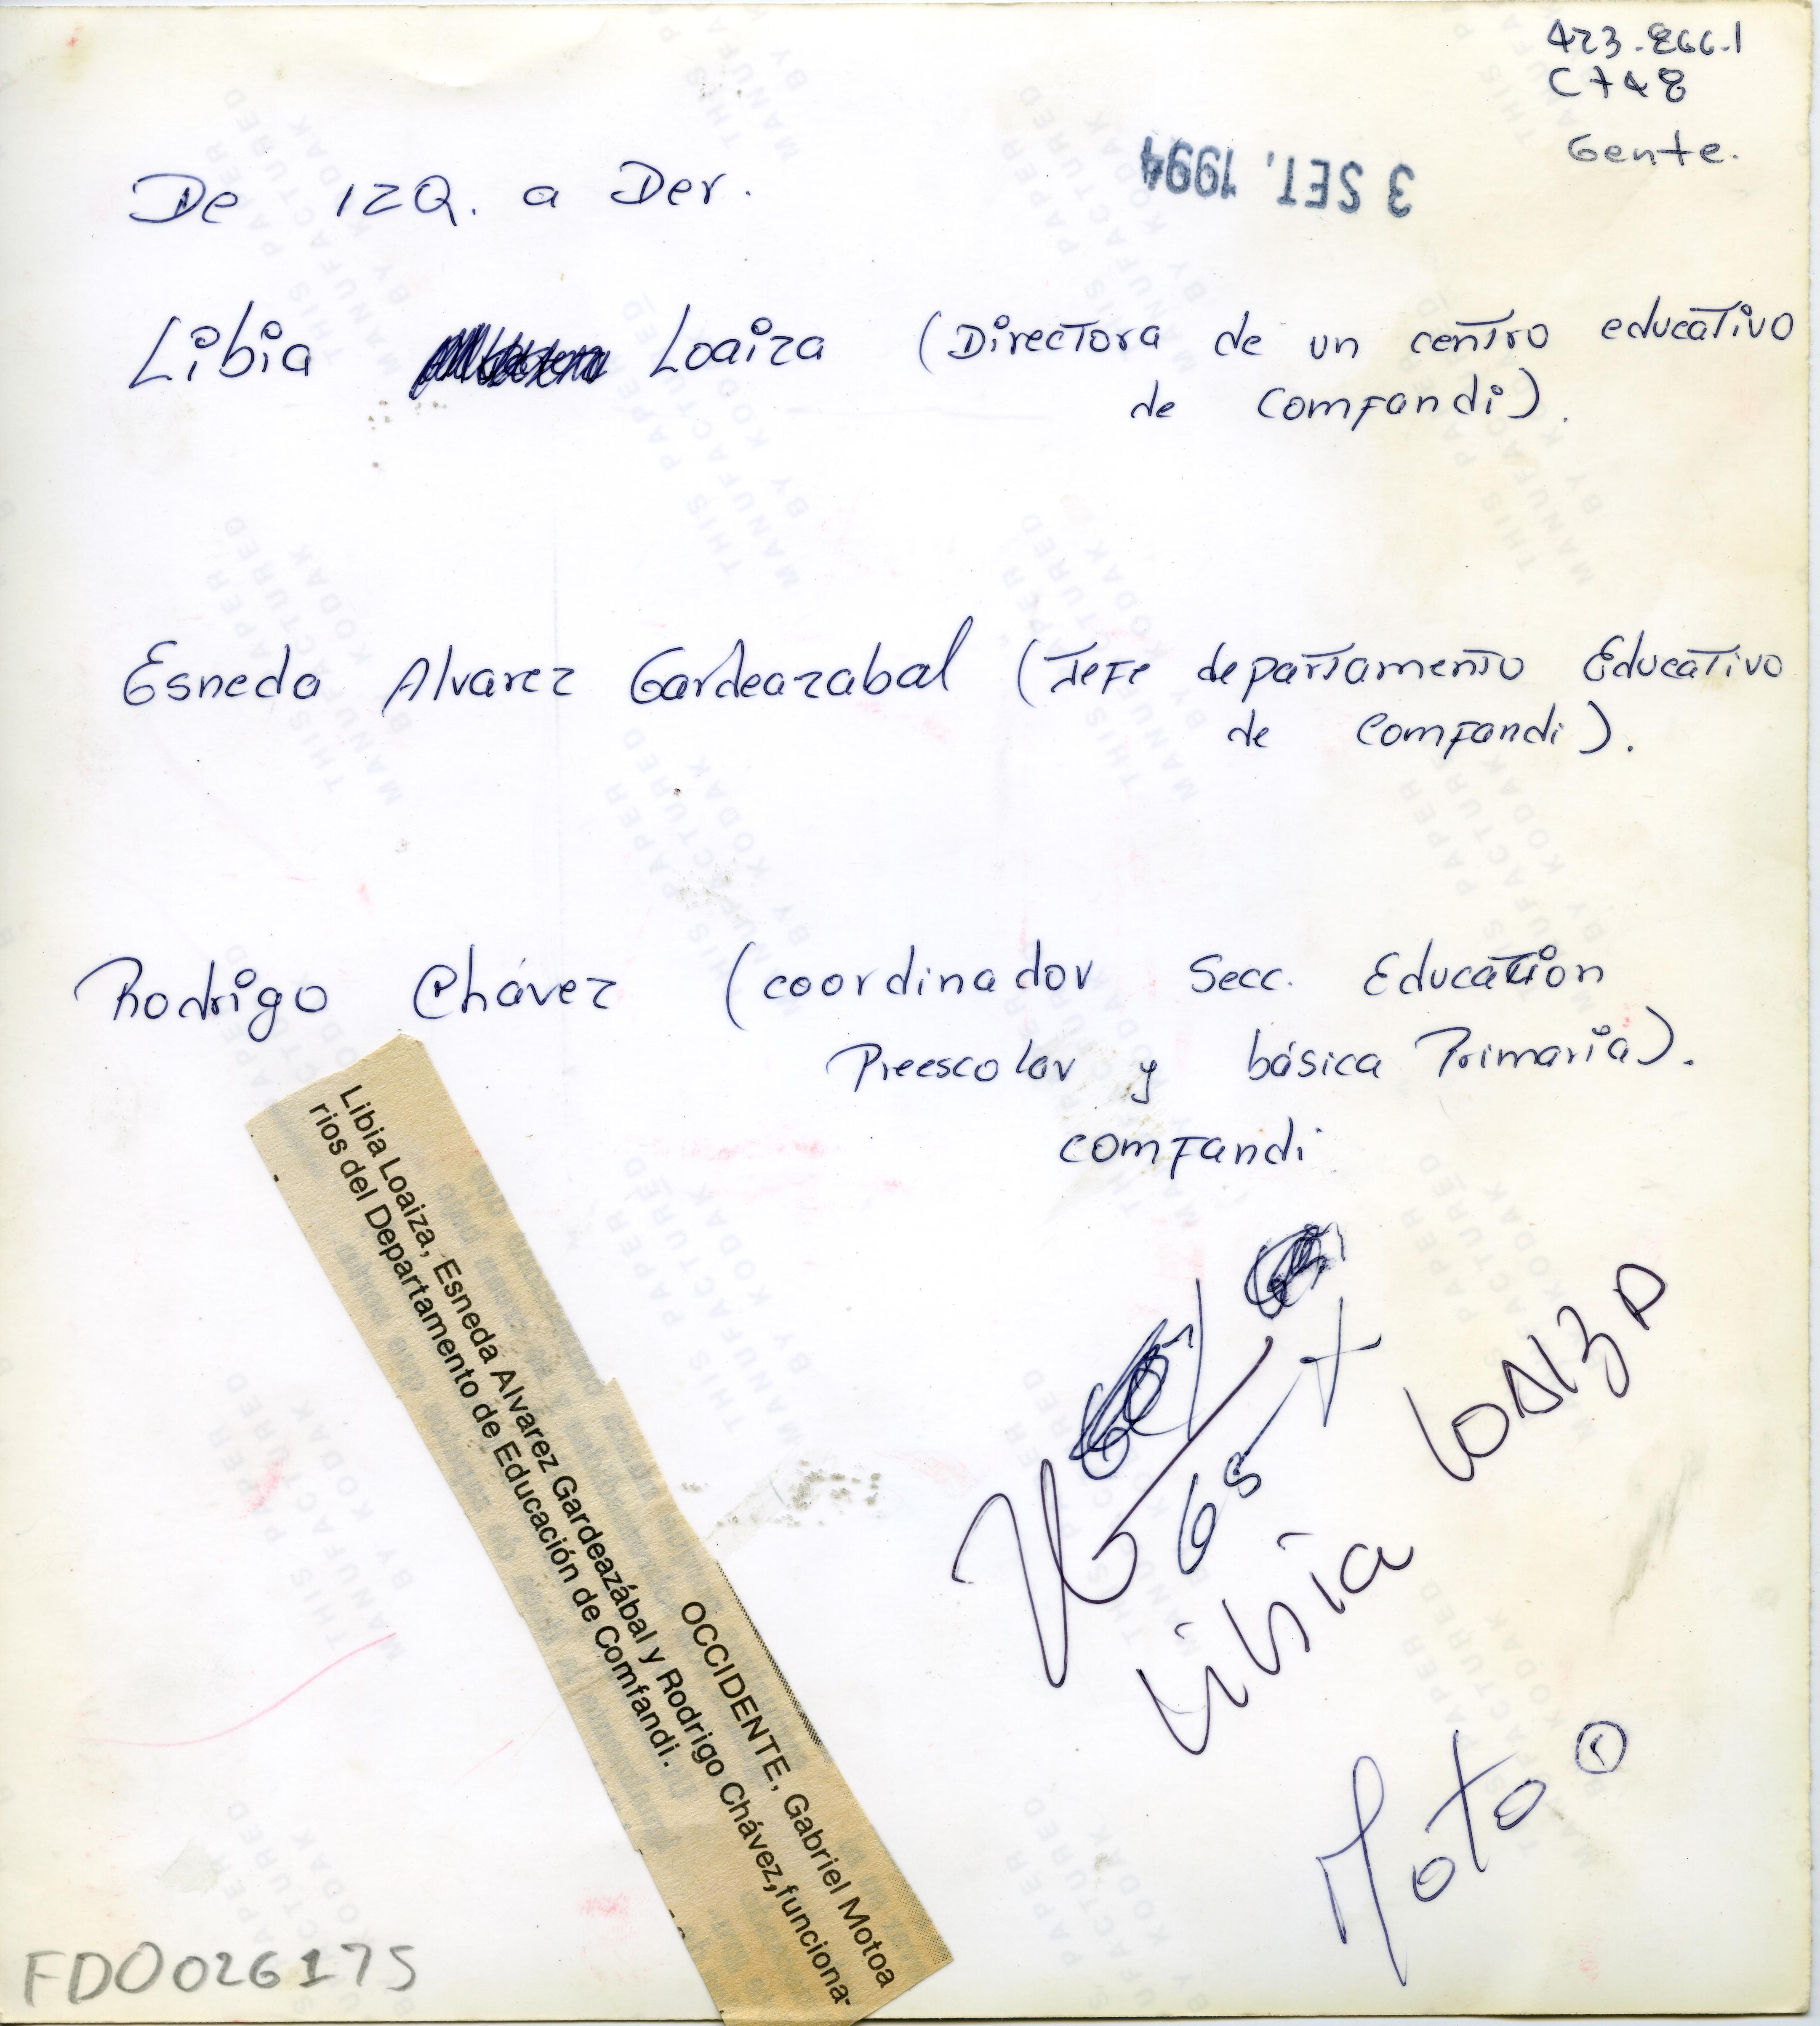 423-266-1
C748
Gente.
3 SET. 1994
De IZQ. a Der.
Libia Loaiza (Directora de un centro educativo
de Comfandi).
Esneda Alvarez Gardeazabal (Jefe departamento Educativo
de Comfandi).
Rodrigo Chávez (coordinador Secc. Education
Preescolar y básica Primaria).
comfandi
OCCIDENTE, Gabriel Motoa
Libia Loaiza, Esneda Alvarez Gardeazábal y Rodrigo Chávez, funciona-
rios del Departamento de Educación de Comfandi.
Libia Loaiza
Moto
FD0026175
THIS PAPER
MANUFACTURED
BY KODAK